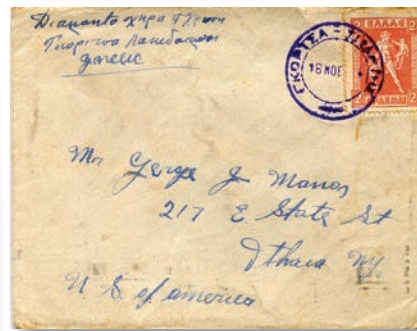 Diamanto χηρα
Γκοριτσα Λακεδαιμον
greece
ΓΚΟΡΙΤΣΑ - ΣΠΑΡΤΗΣ
18 ΝΟΕ
ΕΛΛΑΣ
2 ΔΡΑΧΜΑΙ 2
Mr George J Manos
217 E. State St
Ithaca NY
U S of america